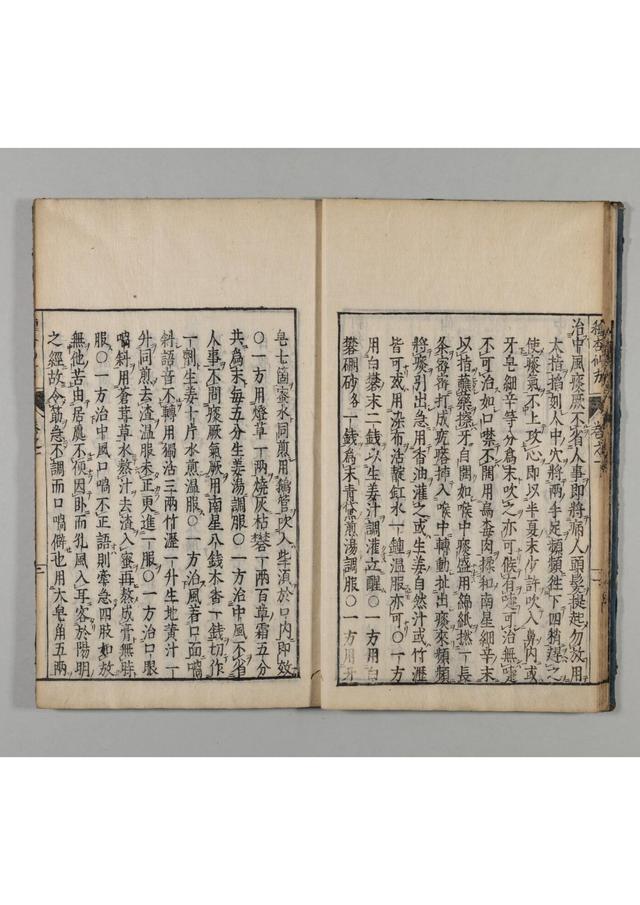 治中風痰厥不省人事即將病人頭髮提起勿放用
大指掐刻人中穴將兩手足頻頻往下四稍趕之
使痰氣不上攻心即以半夏末少許吹入鼻內或
牙皂細辛等分為末吹之亦可候有嚏可治無嚏
不可治如口噤不開用烏梅肉揉和南星細辛末
以指蘸藥擦牙自開如喉中痰盛用綿紙撚一長
條蓇打成掉入喉中轉動扯出痰來頻頻
將痰別出急用香油灌之或生姜自然汁或竹瀝
皆可或用染布活靛缸水一鍾温服亦可○一方
用白礬末二錢以生姜汁調灌立醒○一方用白
礬硼砂各一錢為末青黛煎湯調服○一方用牙
皂七箇蜜水同煎用鵝管吹入些須於口內即效
○一方用燈草一兩燒灰枯礬一兩百草霜五分
共為末每五分生姜湯調服○一方治中風不省
人事不問痰厥氣厥用南星八錢木香一錢切作
一劑生姜十片水煎温服○一方治風着口面喎
斜語音不轉用獨活三兩竹瀝一升生地黃汁一
升同煎去渣温服未正更進一服○一方治口眼
喎斜用蒼茸草水熬汁去渣入蜜再熬成膏無時
服○一方治中風口喎不正語則牽急四肢如故
無他苦由居處不便因卧而孔風入耳客於陽明
之經故令筋急不調而口喎僻也用大皂角五兩
卷之一